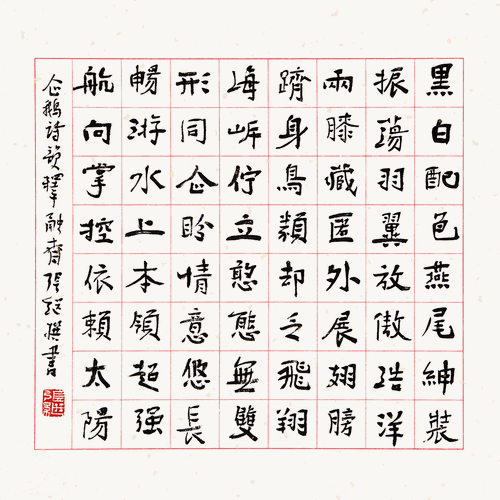 黑白配色燕尾紳裝
振蕩羽翼放傲浩洋
兩膝藏匿外展翅膀
躋身鳥類却乏飛翔
海岸佇立憨態無雙
形同企盼情意悠長
暢游水上本領超强
航向掌控依賴太陽
企鵝詩韵釋融齋張繼撰書